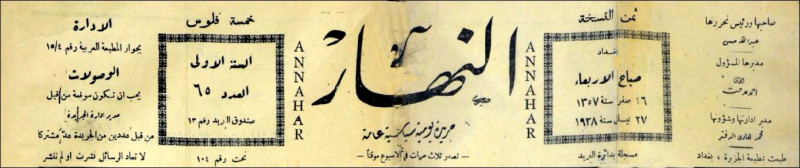 صاحبها ورئيس تحريرها
عبدالله حسن
مديرها المسؤول
مدير ادارتها وشؤونها
طبعت بمطبعة الجزيرة ، بغداد
ثمن النسخة
خمسة فلوس
بغداد
صباح الاربعاء
٢٦ صفر سنة ١٣٥٧
٢٧ نيسان سنة ١٩٣٨
مسجلة بدائرة البريد
ANNAHAR
النهار
جريدة يومية سياسية عامة
— تصدر ثلاث مرات في الاسبوع موقتاً —
ANNAHAR
السنة الاولى
العدد ٦٥
صندوق البريد رقم ١٣
تحت رقم ١٠٤
الادارة
بجوار المطبعة العربية رقم ١٥/٤
الوصولات
يجب ان تكون موقعة من قبل
مدير ادارة الجريدة
من قبل عددين من الجريدة عد مشتركا
لا تعاد الرسائل نشرت او لم تنشر